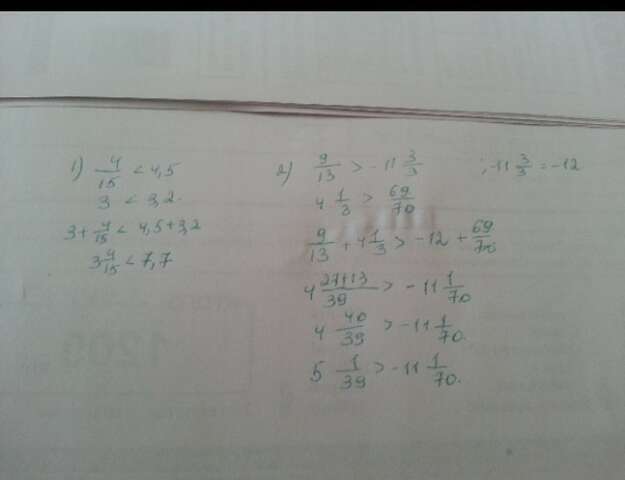 1) 4/15 < 4,5
3 < 3,2.
3 + 4/15 < 4,5 + 3,2
3 4/15 < 7,7
2) 9/13 > -11 3/3 ; -11 3/3 = -12
4 1/3 > 69/70
9/13 + 4 1/3 > -12 + 69/70
4 27+13/39 > -11 1/70
4 40/39 > -11 1/70.
5 1/39 > -11 1/70.